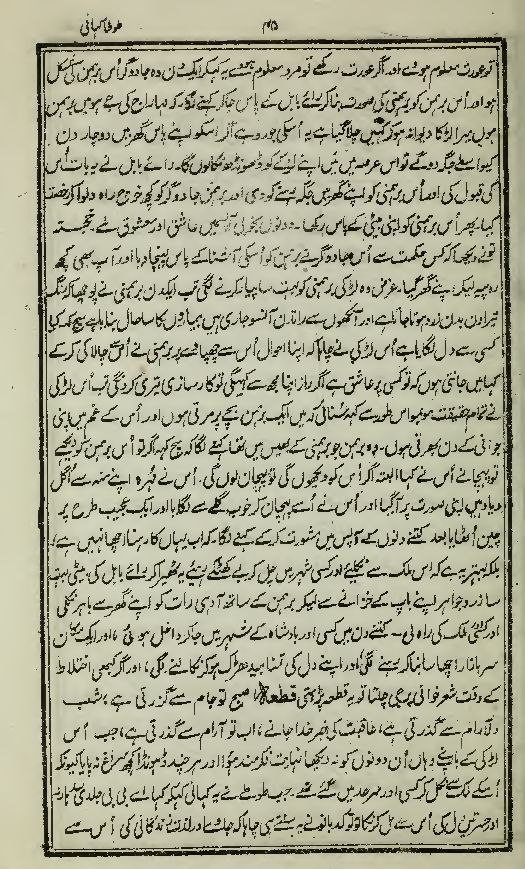 طوطا کہانی
۳۵
تو عورت معلوم ہووے اور اگر عورت رکھے تو مرد معلوم ہووے یہ کہکر ایک دن وہ جادوگر اُس برہمن کی شکل
ہوا اور اُس برہمن کو برہمنی کی صورت بنا کر رائے بابل کے پاس جا کر کہنے لگا کہ مہاراج کی جے ہو میں برہمن
ہوں میرا لڑکا دیوانہ ہو کر کہیں چلا گیا ہے یہ اُسکی جورو ہے اگر اسکو اپنے پاس گھر میں دو چار دن
کیواسطے جگہ دوگے تو اس عرصہ میں میں اپنے لڑکے کو ڈھونڈھ نکالوں گا۔ رائے بابل نے یہ بات اُس
کی قبول کی اور اُس برہمنی کو اپنے گھر میں جگہ دی اور برہمن جادوگر کو کچھ خرچ راہ دلوا کر رخصت
کیا۔ پھر اُس برہمنی کو اپنی بیٹی کے پاس رکھا۔ دونوں عاشق اور معشوق ملے خجستہ
تونے دیکھا کہ کس حکمت سے اُس جادوگر نے برہمن کو اُسکی آشنا کے پاس پہنچا دیا اور آپ بھی کچھ
روپیہ لیکر اپنے گھر گیا۔ غرض وہ لڑکی برہمنی کو بہت سا پیار کرنے لگی تب ایک دن برہمنی نے پوچھا کہ رنگ
تیرا دن بدن زرد ہوتا جاتا ہے اور آنکھوں سے رات دن آنسو جاری ہیں بیماروں کا سا حال بنا ہے سچ کہہ کیا
کسی سے دل لگایا ہے اُس لڑکی نے چاہا کہ اپنا احوال اُس سے چھپاوے پر برہمنی نے اُس سے چالاکی کرکے
کہا میں جانتی ہوں کہ تو کسی پر عاشق ہے اگر راز اپنا مجھ سے کہیگی تو کارسازی تیری کر دونگی تب اُس لڑکی
نے تمام حقیقت ہو بہو اس طور سے کہہ سنائی کہ میں ایک برہمن بچے پر مرتی ہوں اور اُس کے غم میں اپنی
جوانی کے دن بھرتی ہوں۔ وہ برہمن جو برہمنی کے بھیس میں تھا کہنے لگا کہ سچ کہہ اگر تو اُس برہمن کو دیکھے
تو پہچانے اُس نے کہا البتہ اگر اُس کو دیکھوں گی تو پہچان لوں گی۔ اُس نے مُہرہ اپنے منہ سے اُگل
دیا وہیں اپنی صورت پر آگیا اور اُس نے اُسے پہچان کر خوب گلے سے لگایا اور ایک عجیب طرح پر
چین اُٹھایا بعد کتنے دنوں کے آپس میں مشورت کرکے کہنے لگا کہ اب یہاں کا رہنا اچھا نہیں ہے،
بلکہ بہتر یہ ہے کہ اس ملک سے نکلئے اور کسی شہر میں چل کر بے کھٹکے رہئے یہ ٹھہرا کر رائے بابل کی بیٹی بہت
سا زر و جواہر اپنے باپ کے خزانے سے لیکر برہمن کے ساتھ آدھی رات کو اپنے گھر سے باہر نکلی
اور کسی ملک کی راہ لی۔ کتنے دن میں کسی اور بادشاہ کے شہر میں جا کر داخل ہوئی، اور ایک مکان
سر بازار اچھا سا بنا کر رہنے لگی، اور اپنے دل کی تمنا بیدھڑک ہو کر نکالنے لگی، اور اگر کبھی اختلاط
کے وقت شعر خوانی پر جی چلتا تو یہ قطعہ پڑھتی قطعہ صبح تو جام سے گذرتی ہے، شب
دلآرام سے گذرتی ہے، عاقبت کی خبر خدا جانے، اب تو آرام سے گذرتی ہے، جب اُس
لڑکی کے باپ نے وہاں اُن دونوں کو نہ دیکھا نہایت فکرمند ہوا اور ہر چند ڈھونڈا کچھ سراغ نہ پایا کیونکہ
اُسکے ملک سے نکل کر کسی اور سرحد میں گئے تھے۔ جب طوطے نے یہ کہانی کہکر کہا اے بی بی جلدی
اور حسرتیں دل کی اُس سے مل کر نکال تو کدبانو نے یہ سنتے ہی چاہا کہ جائے اور لذت زندگانی کی اُس سے